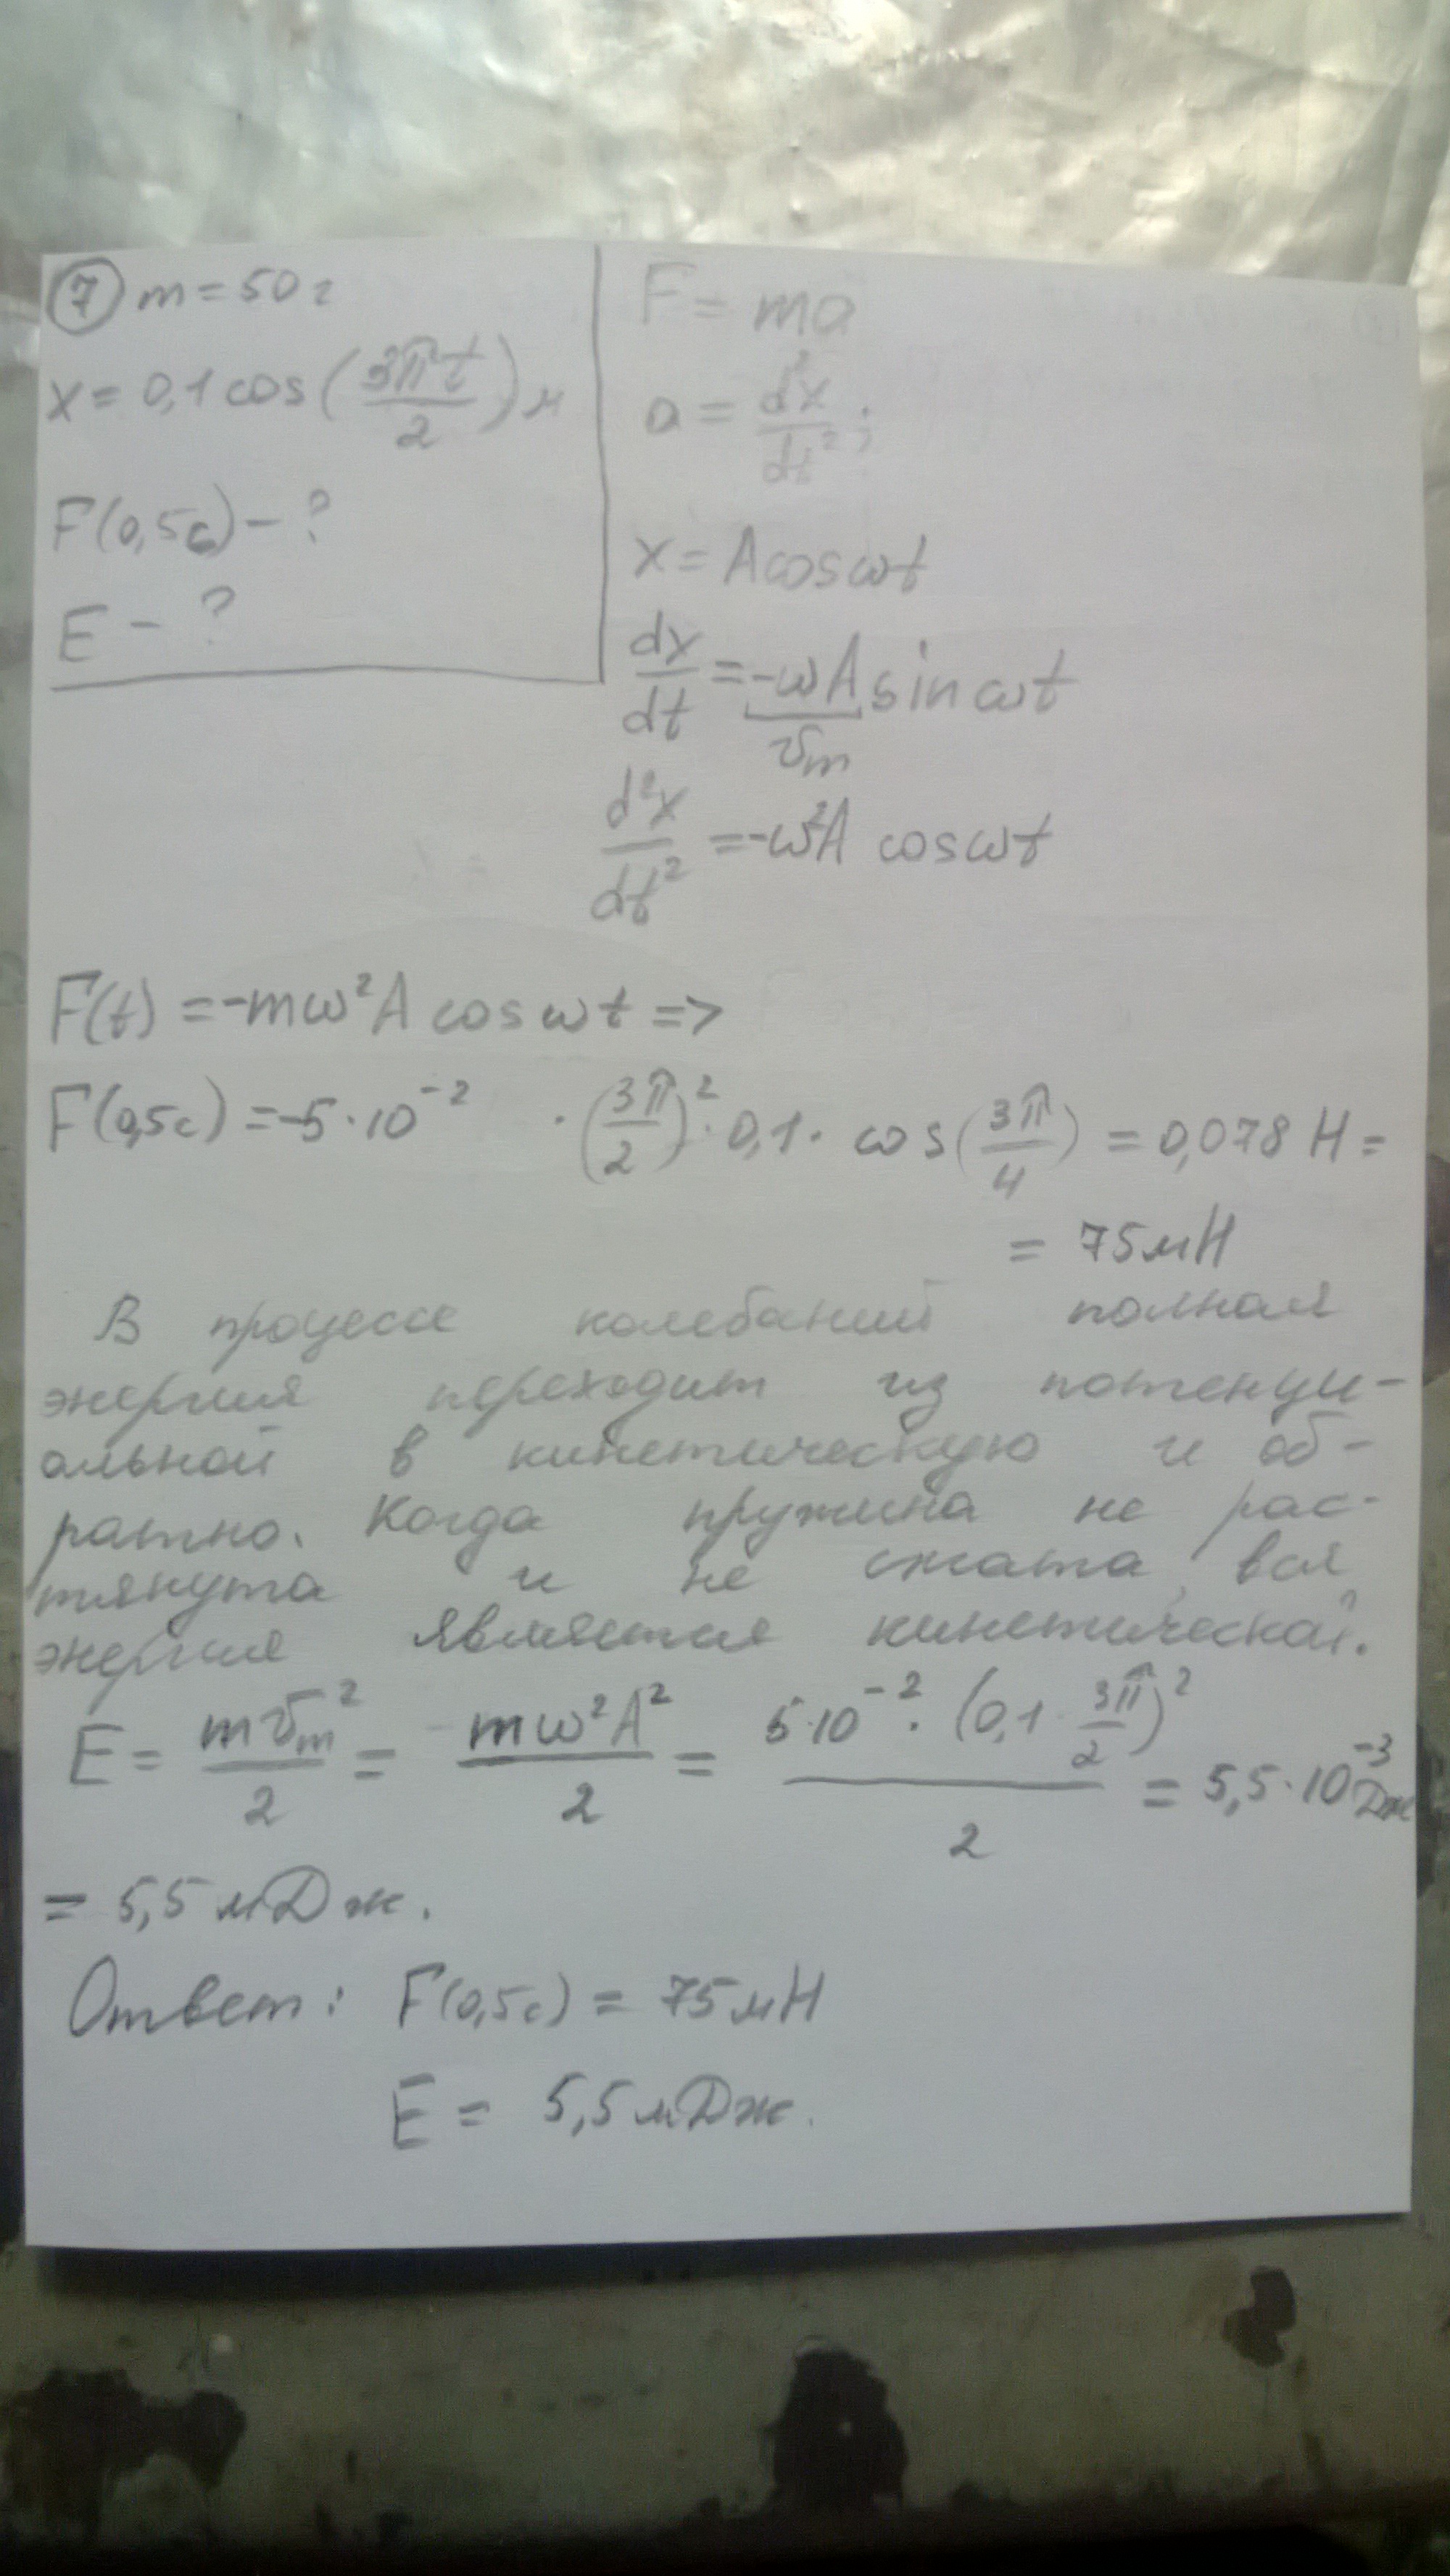 ⑦ m = 50 г
x = 0,1 cos(3πt/2) м
F(0,5с) - ?
E - ?
F = ma
a = d²x/dt²;
x = A cos ωt
dx/dt = -ωA sin ωt
vm
d²x/dt² = -ω²A cos ωt
F(t) = -mω²A cos ωt =>
F(0,5с) = -5·10⁻² · (3π/2)² · 0,1 · cos(3π/4) = 0,078 Н =
= 75 мН
В процессе колебаний полная
энергия переходит из потенци-
альной в кинетическую и об-
ратно. Когда пружина не рас-
тянута и не сжата, вся
энергия является кинетической.
E = mvm²/2 = mω²A²/2 = 5·10⁻² · (0,1 · 3π/2)²/2 = 5,5·10⁻³ Дж
= 5,5 мДж.
Ответ: F(0,5с) = 75 мН
E = 5,5 мДж.